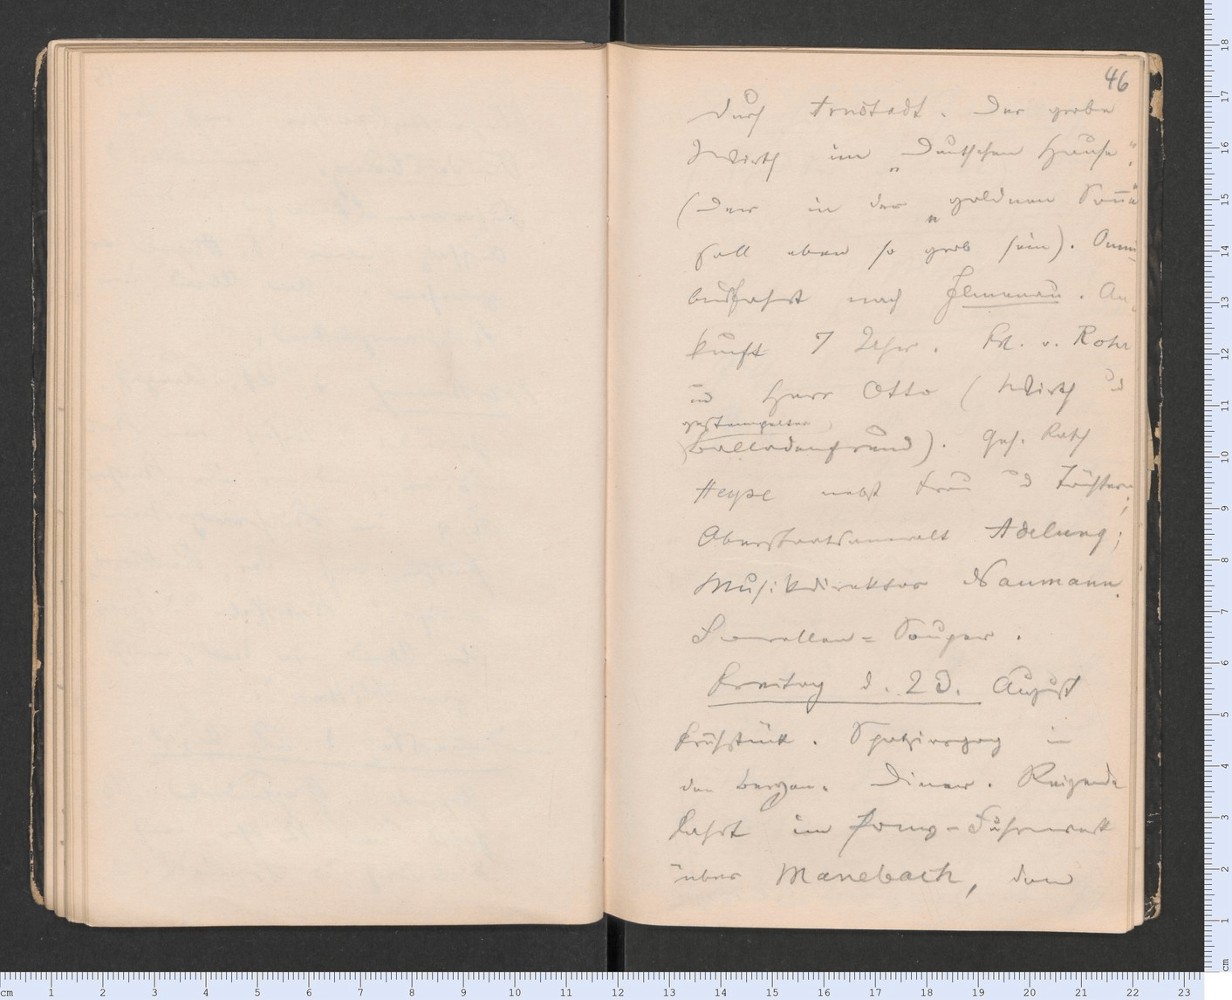 46
durch Arnstadt. Der grobe
Wirth im „Deutschen Hause";
(der in der „goldnen Sonne"
soll eben so grob sein). Omni
busfahrt nach Ilmenau. An
kunft 7 Uhr. Frl. v. Rohr
u Herr Otto (Wirth und
gestempelter
Balladenfreund). Geh. Rath
Heyse nebst Frau und Töchtern;
Oberstaatsanwalt Adelung;
Musikdirektor Naumann.
Forellen-Souper.
Freitag d. 23. August
Frühstück. Spatziergang in
den Bergen. Diner. Reizende
Fahrt im Pony-Fuhrwerk
über Manebach, dann